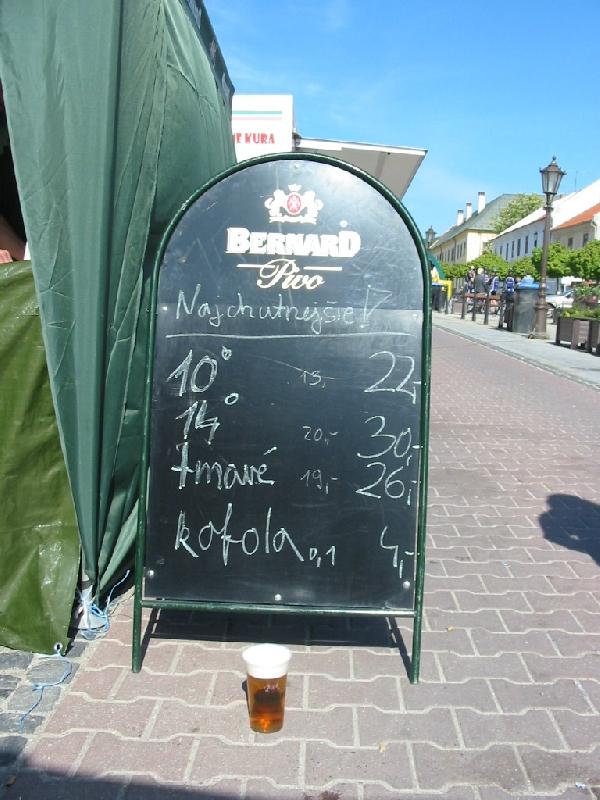 E KURA
BERNARD
Pivo
Najchutnejšie!
10° 15,- 22,-
14° 20,- 30,-
tmavé 19,- 26,-
kofola 0,1 4,-